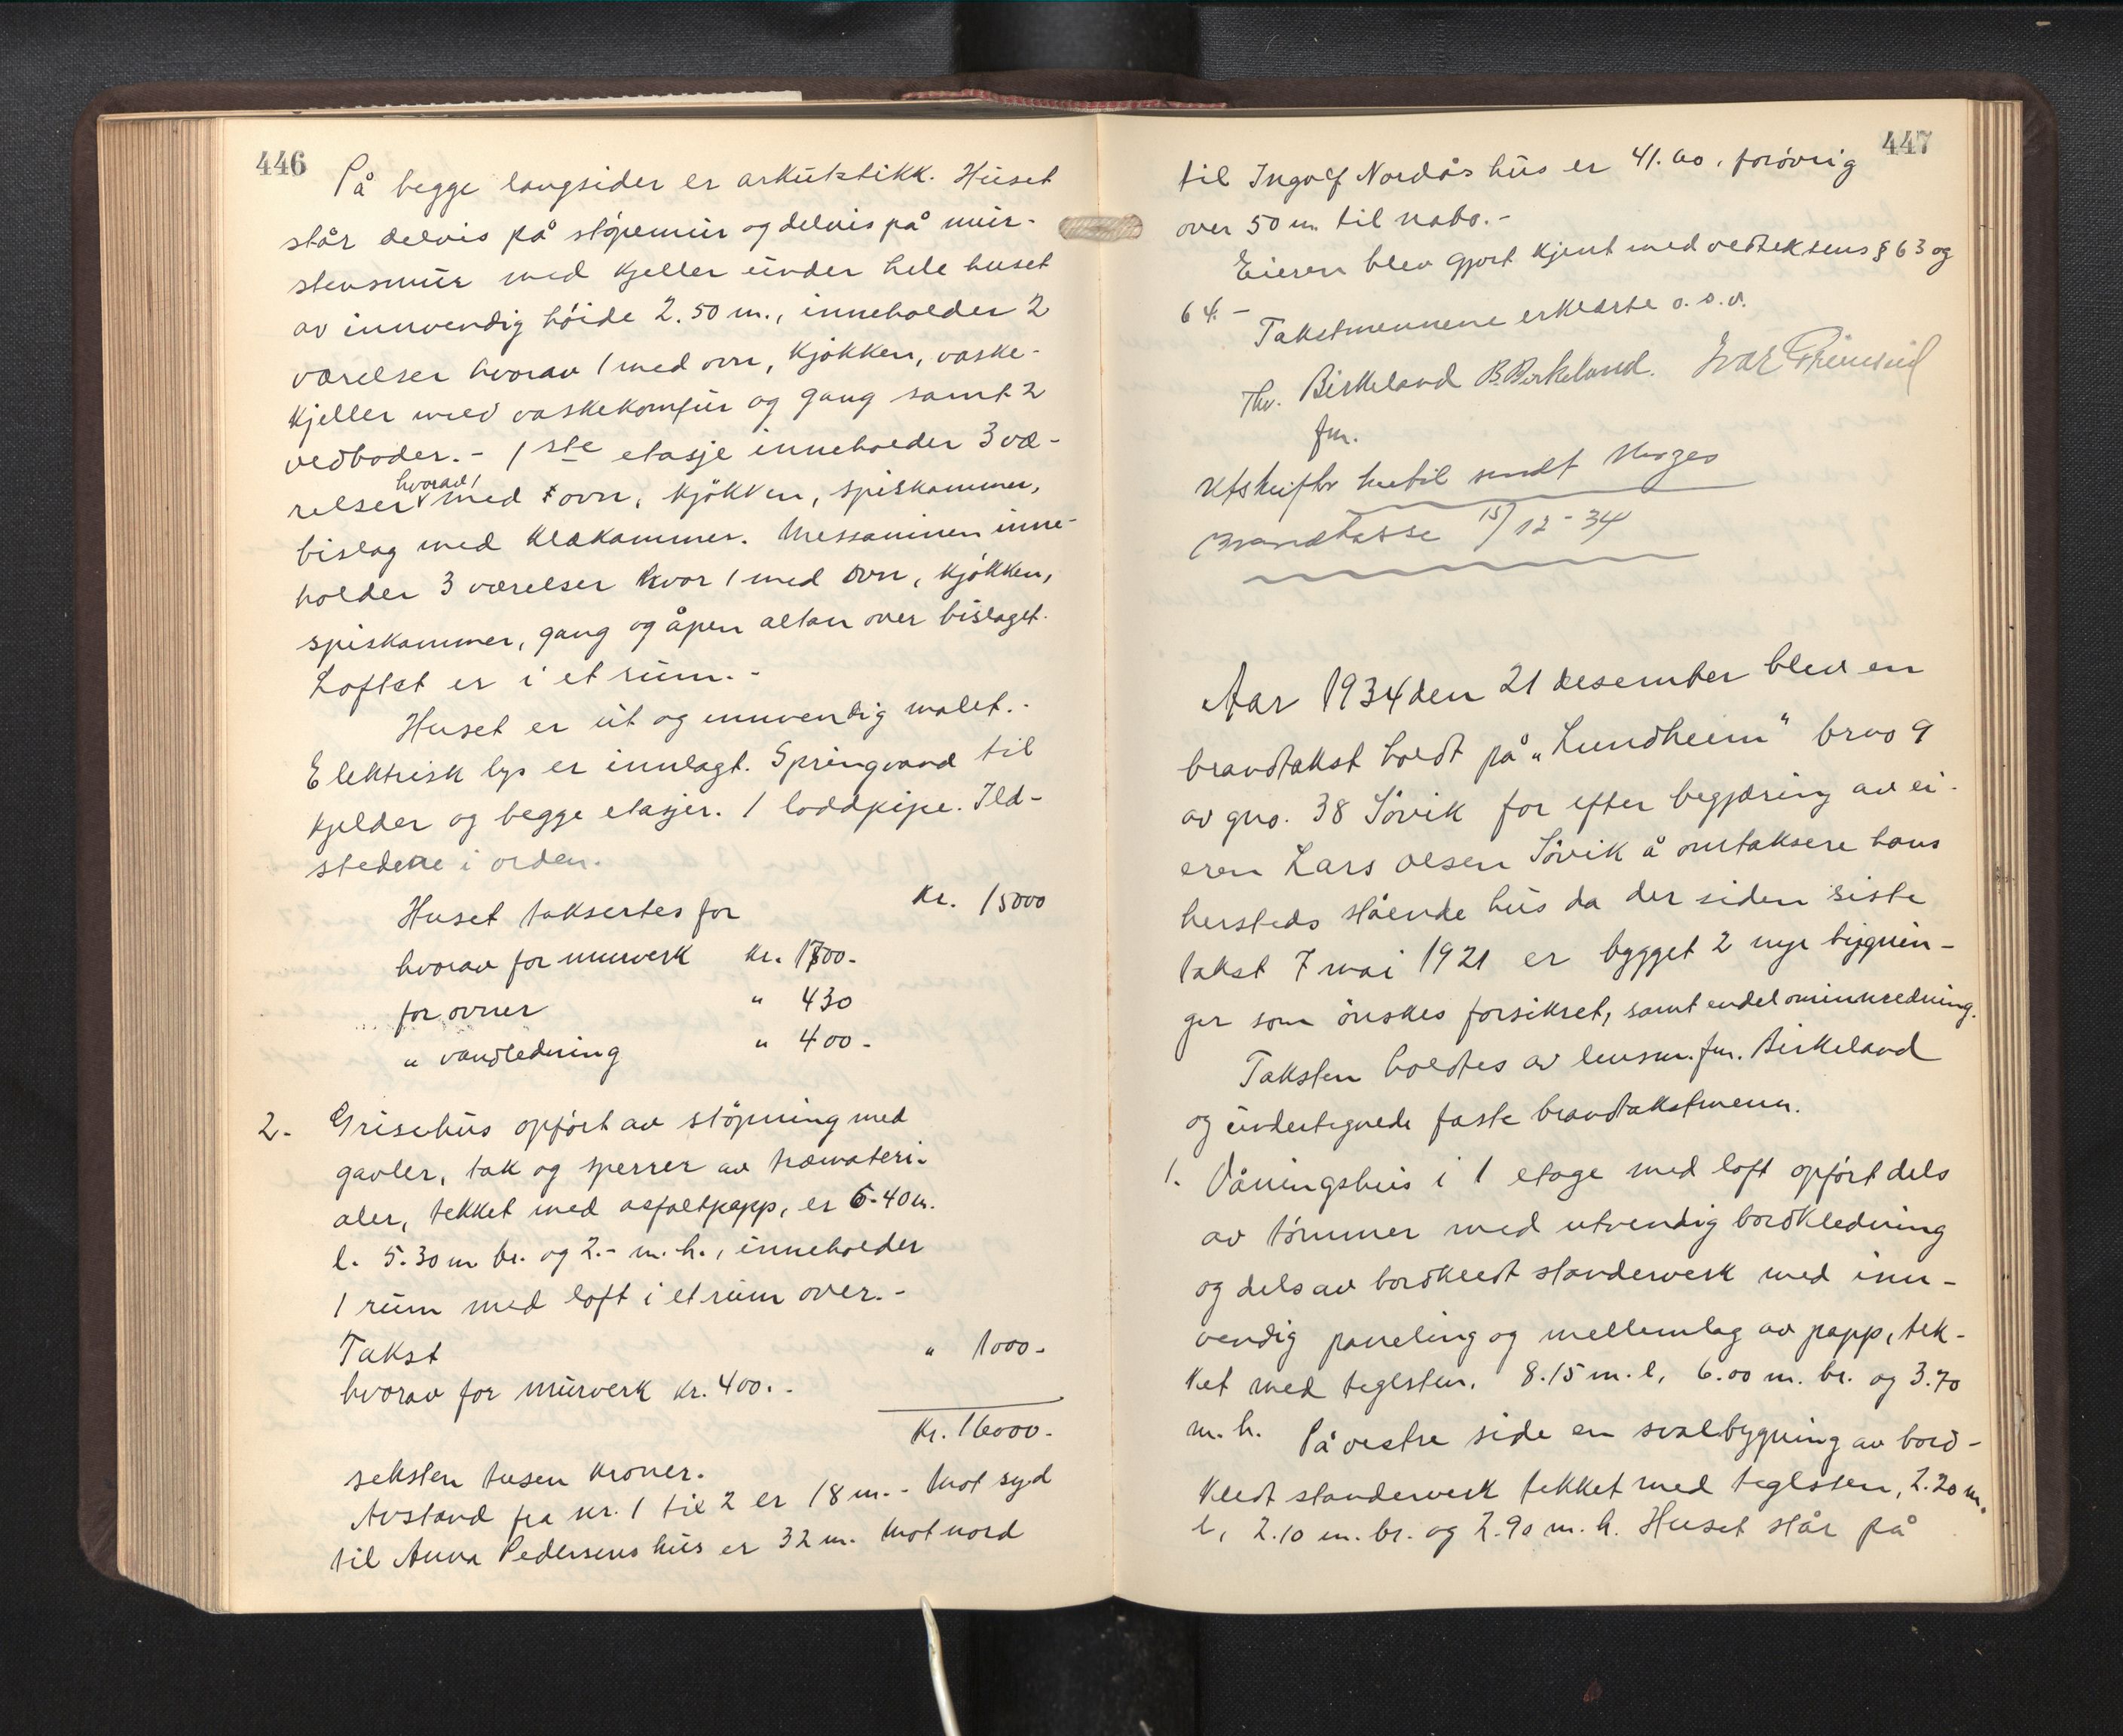 446
På begge langsider er arkutstikk. Huset
står delvis på støpemur og delvis på mur-
stensmur med kjeller under hele huset
av innvendig höide 2.50 m., inneholder 2
værelser hvorav 1 med ovn, kjökken, vaske-
kjeller med vaskekomfur og gang samt 2
vedboder. - 1ste etasje inneholder 3 væ-
relser hvorav 1 med ovn, kjökken, spiskammer,
bislag med klækammer. Messaninen inne-
holder 3 værelser hvor 1 med ovn, kjökken,
spiskammer, gang og åpen altan over bislaget.
Loftet er i et rum. -
Huset er ut og innvendig malet. -
Elektrisk lys er innlagt. Springvand til
kjelder og begge etasjer. 1 loddpipe. Ild-
stedene i orden.
Huset taksertes for kr. 15000
hvorav for murverk kr. 1700.-
for ovner " 430
" vandledning " 400-
2. Grisehus opfört av stöpning med
gavler, tak og sperrer av træmateri-
aler, tekket med asfaltpapp, er 6.40 m.
l. 5.30 m br. og 2.- m. h., inneholder
1 rum med loft i et rum over. -
Takst " 1000-
hvorav for murverk kr. 400. -
kr. 16000-
seksten tusen kroner.
Avstand fra nr. 1 til 2 er 18 m. - Mot syd
til Anna Pedersens hus er 32 m. Mot nord
447
til Ingolf Nordås hus er 41.00, forövrig
over 50 m. til nabo. -
Eieren blev gjort kjent med vedtektens § 63 og
64. -
Takstmennene erklærte o. s. v.
Thv. Birkeland B. Birkeland. Ivar
fm.
Utskrifter hertil sendt Norges
Brandkasse 15/12-34
Aar 1934 den 21 desember blev en
brandtakst holdt på "Lundheim" brno 9
av gno. 38 Sövik for efter begjæring av ei-
eren Lars Olsen Sövik å omtaksere hans
hersteds stående hus da der siden siste
takst 7 mai 1921 er bygget 2 nye bygnin-
ger som önskes forsikret, samt endel ominnredning.
Taksten holdtes av lensm. fm. Birkeland
og undertegnede faste brandtakstmenn.
1. Våningshus i 1 etage med loft opfört dels
av tömmer med utvendig bordkledning
og dels av bordkledt standerverk med inn-
vendig paneling og mellemlag av papp, tek-
ket med teglsten. 8.15 m. l, 6.00 m. br. og 3.70
m. h. På vestre side en svalbygning av bord-
kledt standerverk tekket med teglsten, 2.20 m.
l, 2.10 m. br. og 2.90 m. h. Huset står på